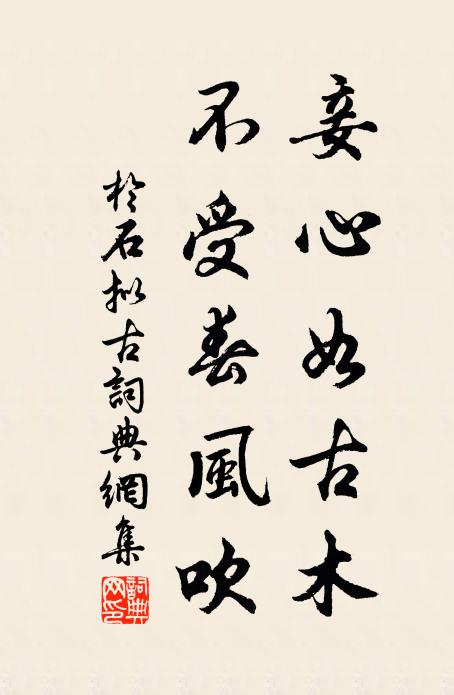 妾心如古木
不受春風吹
於石拟古詞典網集
詞典網印